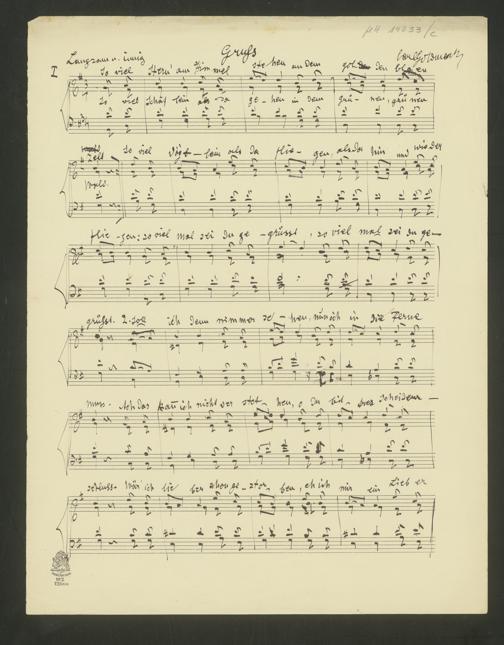 MH 14033/c
Gruss
Langsam u. innig
I
So viel Stern' am Himmel stehen an dem goldenen blauen
So viel Schäflein als da gehen in dem grünen, grünen
Zelt so viel Vöglein als da fliegen, als da hin und wieder
fliegen: so viel mal sei du gegrüsst, so viel mal sei du ge-
grüsst. 2. Soll ich denn nimmer sehen, nun ich in die Ferne
muss. Ach das kann ich nicht verstehen, o du bittrer Scheidens-
schluss. Wär ich lieber schon gestorben, eh ich mir ein Lieb er